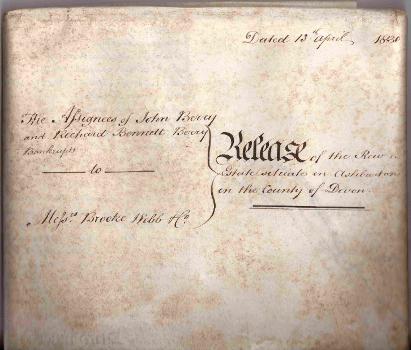 Dated 13th April,
The Assignees of John Berry
and Richard Bennett Berry
Bankrupts
to
Messrs Brooke Webb & Co
Release of the Row
Estate situate in Ashburton
in the County of Devon